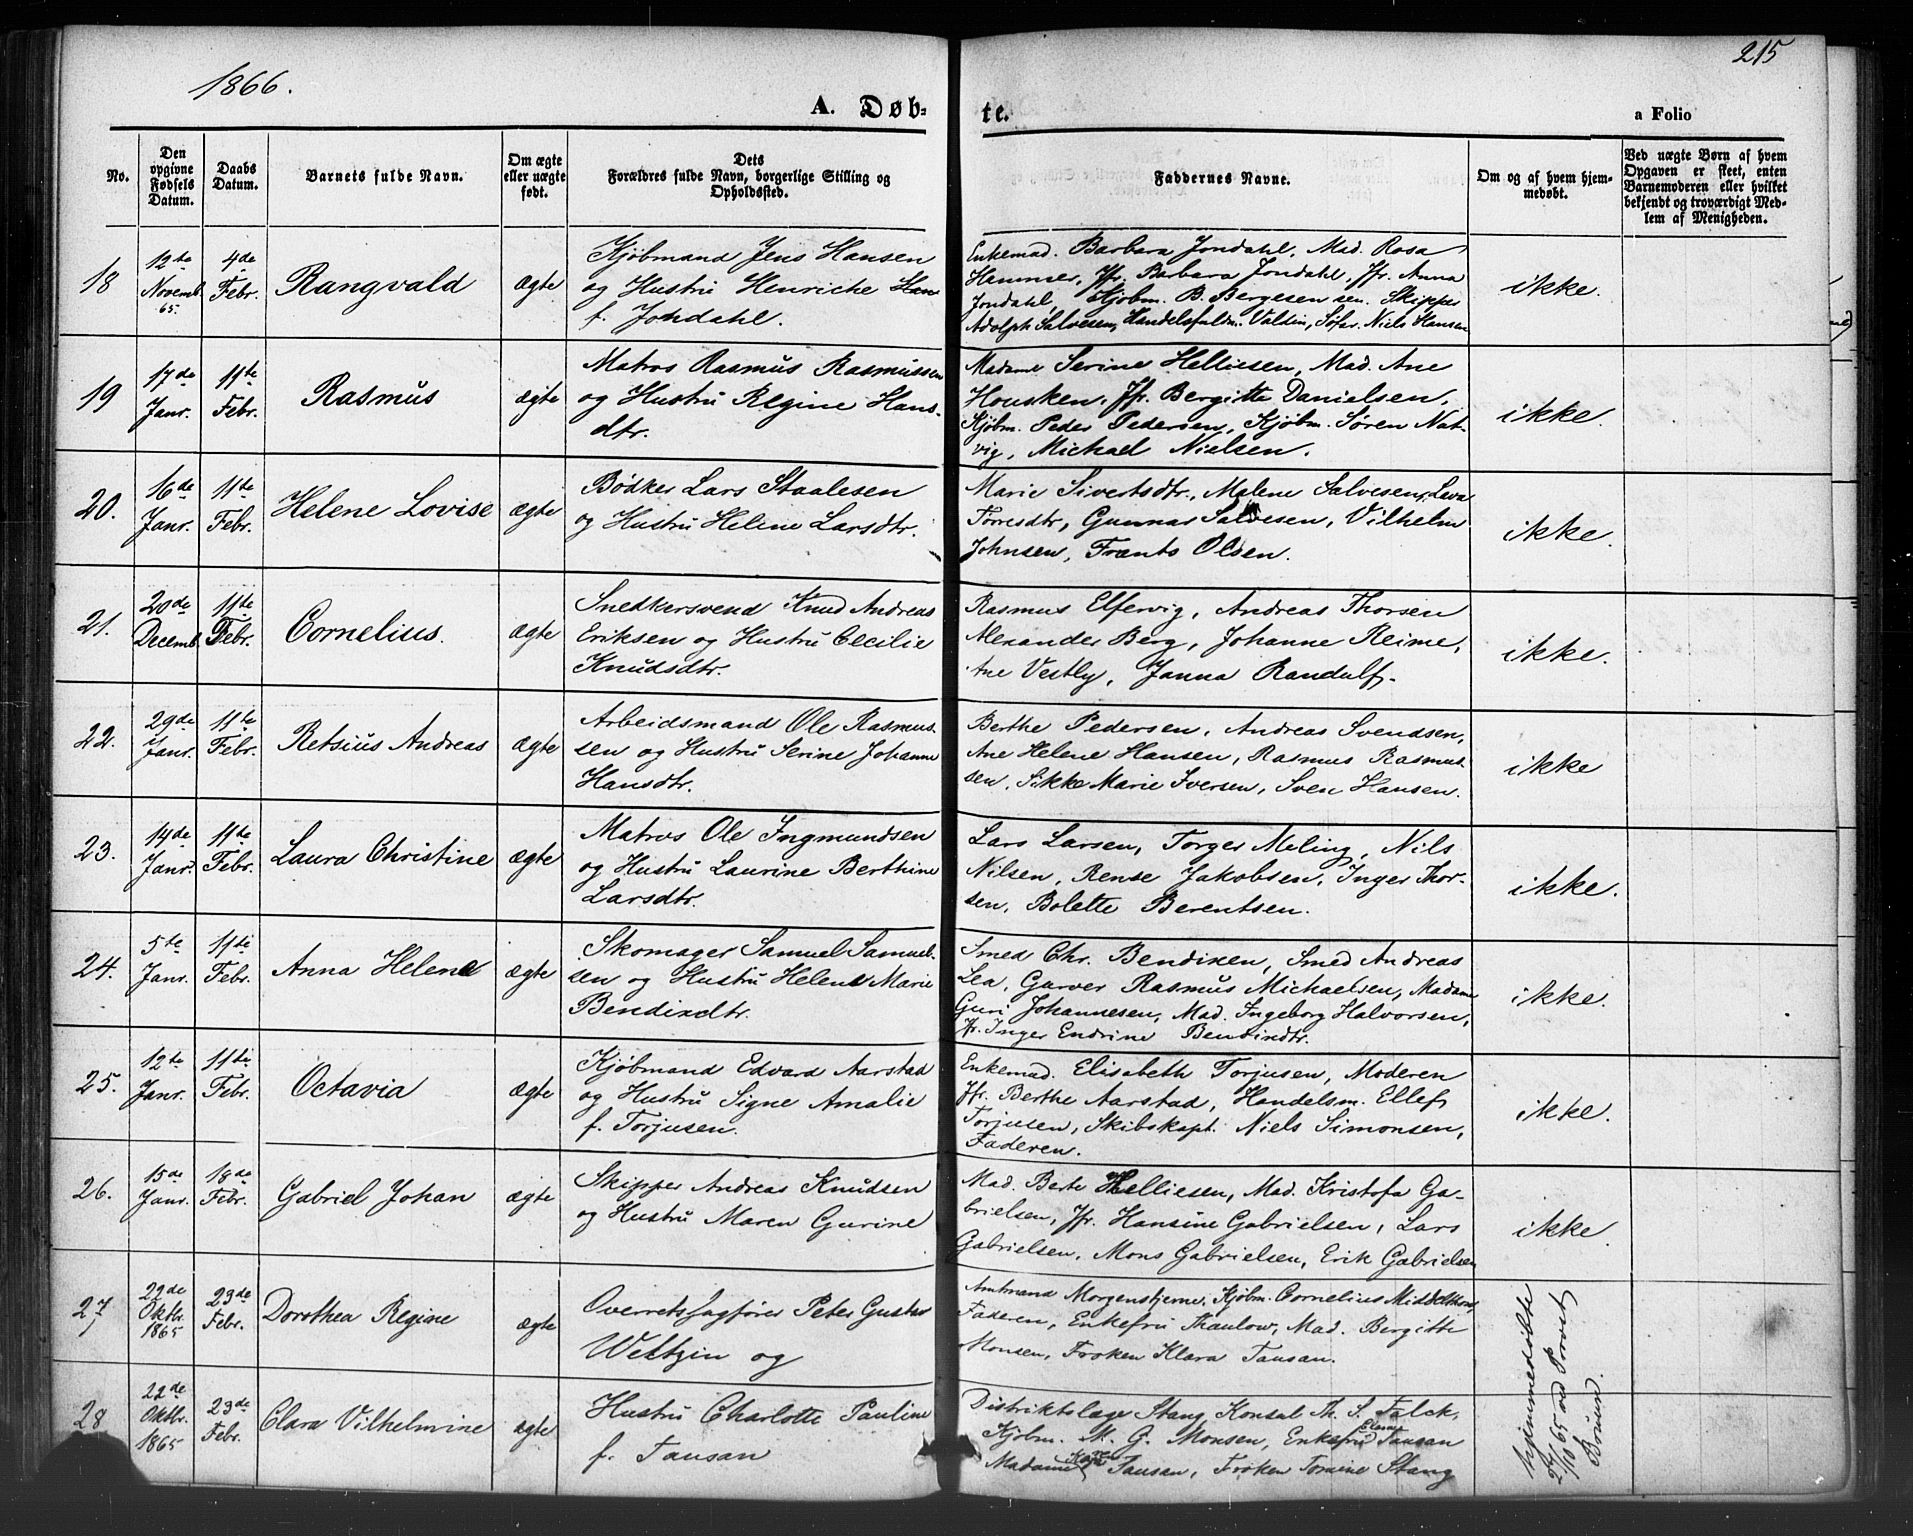 215
1866.
A. Døb-
te.
a Folio
No.
Den opgivne Fødsels Datum.
Daabs Datum.
Barnets fulde Navn.
Om ægte eller uægte født.
Dets Forældres fulde Navn, borgerlige Stilling og Opholdssted.
Faddernes Navne.
Om og af hvem hjem-medøbt.
Ved uægte Børn af hvem Opgaven er skeet, enten Barnemoderen eller hvilket bekjendt og troværdigt Med-lem af Menigheden.
18 12te Novemb. 65. 4de Febr. Rangvald ægte
Kjøbmand Jens Hansen
og Hustru Henriche
f. Jondahl.
Enkemad. Barbara Jondahl, Mad. Rosa
Hammer, Jfr. Barbara Jondahl, Jfr. Anna
Jondahl, Kjøbm. B. Bergesen sen. Skipper
Adolph Salvesen, Handelsfuldm. Valdin, Søfar. Niels Hansen
ikke.
19 17de Janr. 11te Febr. Rasmus ægte
Matros Rasmus Rasmussen
og Hustru Regine Hans-
dtr.
Madame Serine Helliesen, Mad. Ane
Housken, Jfr. Bergitte Danielsen,
Kjøbm. Peder Pedersen, Kjøbm. Søren Nat-
vig, Michael Nielsen.
ikke.
20. 16de Janr. 11te Febr. Helene Lovise ægte
Bødker Lars Staalesen
og Hustru Helene Larsdtr.
Marie Sivertsdtr., Malene Salvesen, Lava
Torresdtr, Gunnar Salvesen, Vilhelm
Johnsen, Frants Olsen.
ikke.
21. 20de Decemb. 11te Febr. Cornelius. ægte
Snedkersvend Knud Andreas
Eriksen og Hustru Cecilie
Knudsdtr.
Rasmus Elfervig, Andreas Thorsen
Alexander Berg, Johanne Reime,
Ane Vestly, Janna Randulf.
ikke.
22. 29de Janr. 11te Febr. Retsius Andreas ægte
Arbeidsmand Ole Rasmus-
sen og Hustru Serine Johanne
Hansdtr.
Berthe Pedersen, Andreas Svendsen,
Ane Helene Hansen, Rasmus Rasmus-
sen, Sikke Marie Iversen, Sven Hansen.
ikke
23. 14de Janr. 11te Febr. Laura Christine ægte
Matros Ole Ingmundsen
og Hustru Laurine Berthine
Larsdtr.
Lars Larsen, Torger Meling, Nils
Nilsen, Rense Jakobsen, Inger Thor-
sen, Bolette Berentsen.
ikke.
24. 5te Janr. 11te Febr. Anna Helene ægte
Skomager Samuel Samuel-
sen og Hustru Helene Marie
Bendixdtr.
Smed Chr. Bendixen, Smed Andreas
Lea, Garver Rasmus Michaelsen, Madame
Guri Johannesen, Mad. Ingeborg Halvorsen,
Jfr. Inger Endrine Bendixdtr.
ikke.
25. 12te Janr. 11te Febr. Octavia ægte
Kjøbmand Edvard Aarstad
og Hustru Signe Amalie
f. Torjusen.
Enkemad. Elisabeth Torjusen, Moderen
Jfr. Berthe Aarstad, Handelsm. Ellef
Torjusen, Skibskapt. Niels Simonsen,
Faderen.
ikke.
26. 15de Janr. 18de Febr. Gabriel Johan ægte
Skipper Andreas Knudsen
og Hustru Maren Gurine
Mad. Berte Helliesen, Mad. Kristofa Ga-
brielsen, Jfr. Hansine Gabrielsen, Lars
Gabrielsen, Mons Gabrielsen, Erik Gabrielsen
ikke.
27 22de Oktbr. 1865 23de Febr. Dorothea Regine ægte
Overretssagfører Peter Gustav
Weltzin og
Amtmand Morgenstjerne, Kjøbm. Cornelius Middelthon,
Faderen, Enkefru Thaulow, Mad. Bergitte
Monsen, Frøken Klara Tausan.
28 22de Oktbr. 1865 23de Febr. Clara Vilhelmine ægte
Hustru Charlotte Pauline
f. Tausan
Distriktslæge Stang, Konsul Th. S. Falck,
Kjøbm. M. G. Monsen, Enkefru Tausan
Madame Tausan, Frøken Tomine Stang
hjemmedøbte
24/10 65 ved Provst
Bruun.